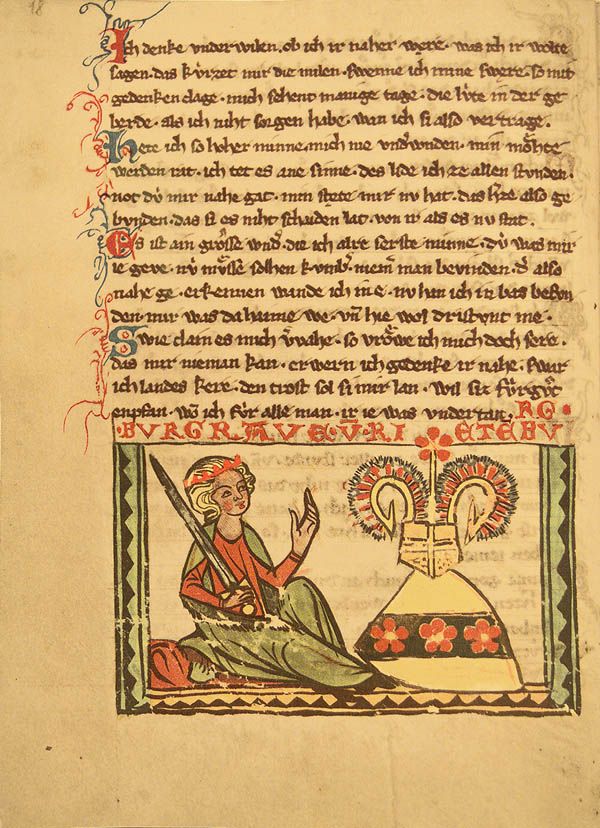 18
Ich denke vnderwilen. ob ich ir naher węre. was ich ir wolte
sagen. das kv́rzet mir die milen. swenne ich mine swęre. so mit
gedenken clage. mich sehent manige tage. die lv́te in der ge
berde. als ich niht sorgen habe. wan ich si also vertrage.
Hete ich so hoher minne. mich nie vnd̾wnden. min mo̊hte
werden rat. ich tet es ane sinne. des lide ich ze allen stvnden.
not dv́ mir nahe gat. min stete mir nv hat. das h̾ze also ge
bvnden. das si es niht schaiden lat. von ir als es nv stat.
Es ist ain grosse wnd̾. die ich alre serste minne. dv́ was mir
ie geve. nv mv̊sse solhen kvmb̾. niem̾ man bevinden. d̾ also
nahe ge. erkennen wande ich in e. nv han ich in bas bevn
den. mir was da haime we. vn̄ hie wol dristvnt me.
Swie clain es mich v̾vahe. so vro̊we ich mich doch sere.
das mir nieman kan. erwern ich gedenke ir nahe. swar
ich landes kere. den trost sol si mir lan. wil siz fv́r gv̊t
enpfan. wā ich fv́r alle man. ir ie was vndertan.
·BVRGRAVE·V̄·RIETEBVRG·